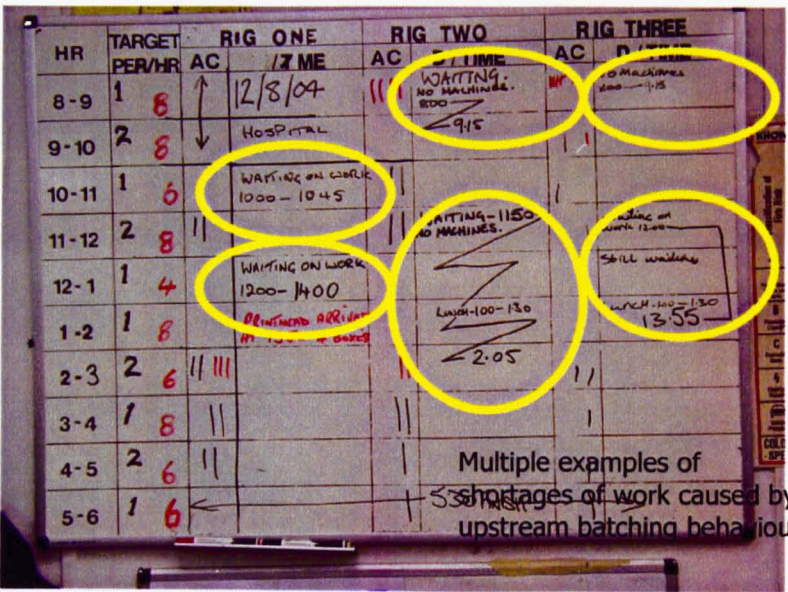 RIG ONE RIG TWO RIG THREE
HR TARGET PER/HR AC /TIME AC D/TIME AC D/TIME
8-9 1 8 12/8/04 WAITING. NO MACHINES. 8:00 9.15 No Machines 9.15
9-10 2 8 HOSPITAL
10-11 1 6 WAITING ON WORK 1000-1045
11-12 2 8 WAITING-1150 NO MACHINES. Waiting on work 12.00
12-1 1 4 WAITING ON WORK 1200-1400 Still waiting
1-2 1 8 PRINTHEAD LUNCH-100-1:30 LUNCH-1.00-1:30 13.55
2-3 2 6 2.05
3-4 1 8
4-5 2 6
5-6 1 6 530 FINISH
Multiple examples of
shortages of work caused by
upstream batching behaviou